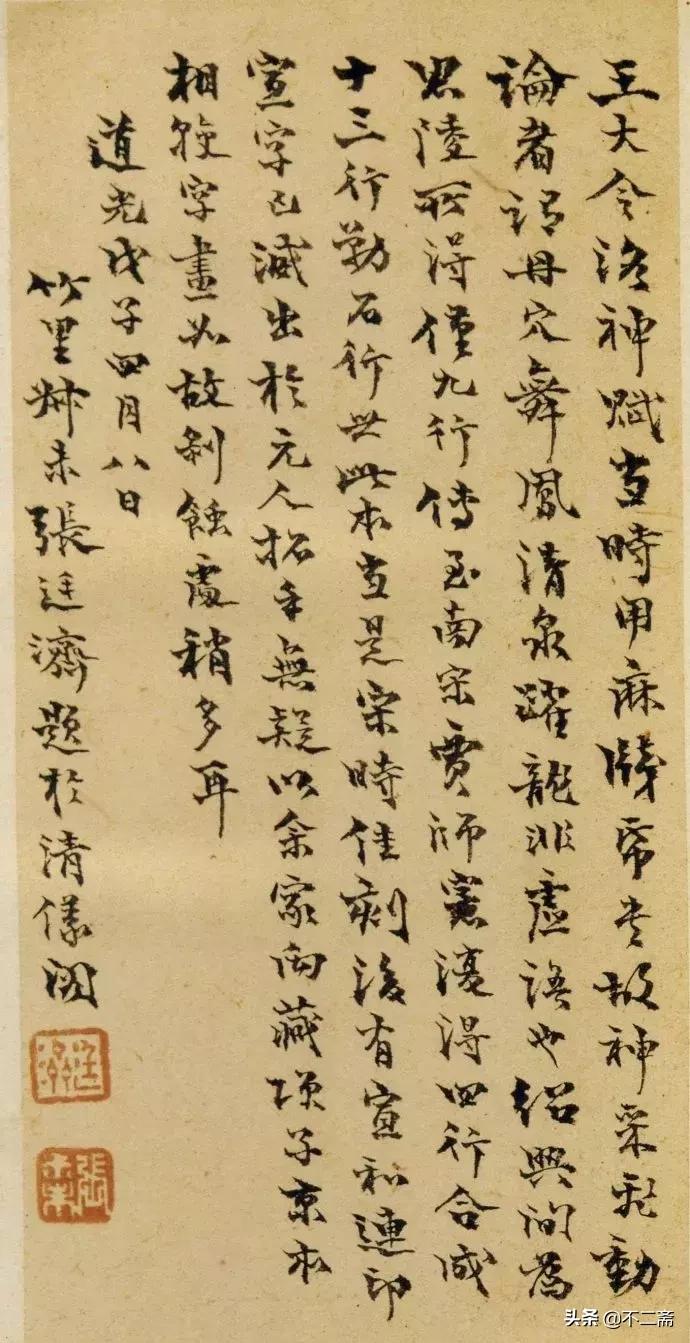 王大令洛神賦當時用麻牋帋書故神采飛動
論者謂丹穴舞鳳清泉躍龍非虛語也紹興間為
思陵所得僅九行傳至南宋賈師憲復得四行合成
十三行勒石行世此本當是宋時佳刻後有宣和連印
宣字已滅出於元人拓手無疑以余家向藏項子京本
相較字畫如故剝蝕處稍多耳
道光戊子四月八日
竹里叔未張廷濟題於清儀閣
廷濟
張叔未
头条 @不二斋